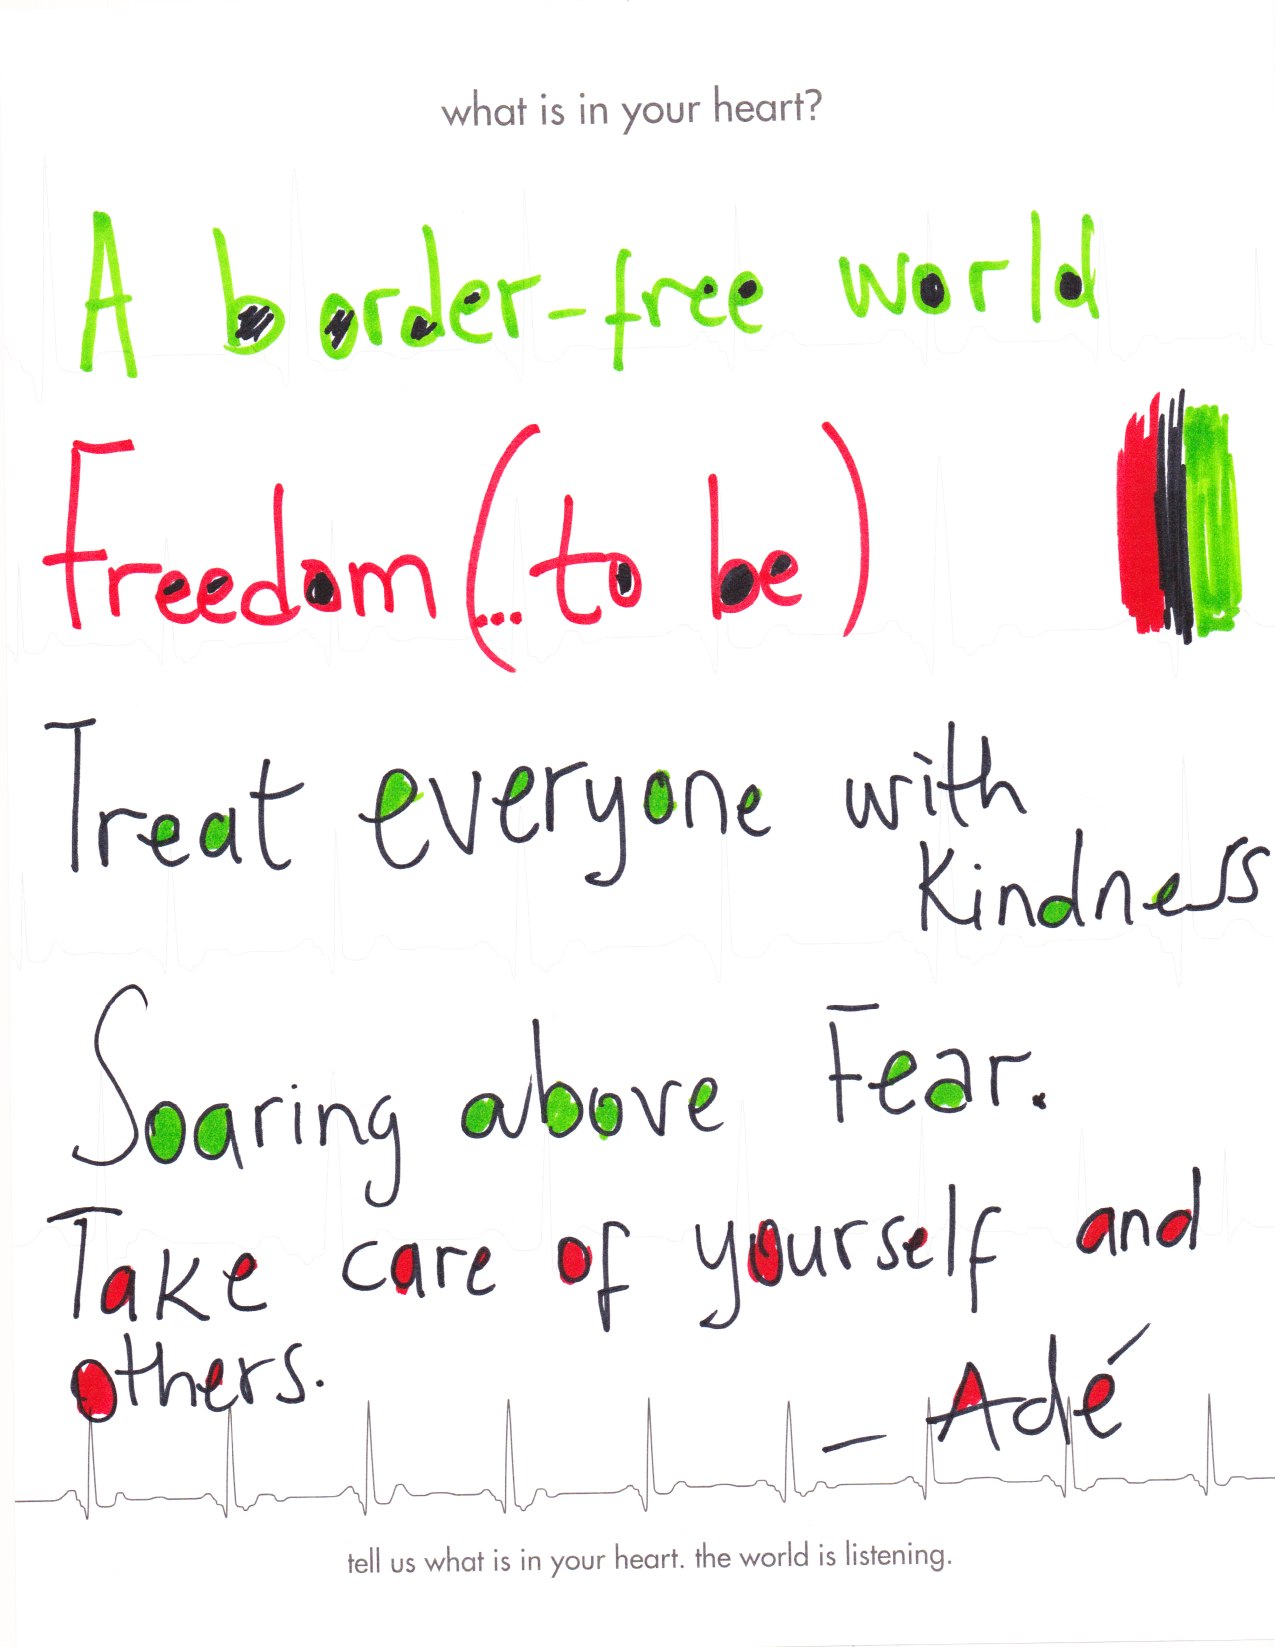 what is in your heart?
A border-free world
Freedom (...to be)
Treat everyone with
Kindness
Soaring above Fear.
Take care of yourself and
others.
– Adé
tell us what is in your heart. the world is listening.